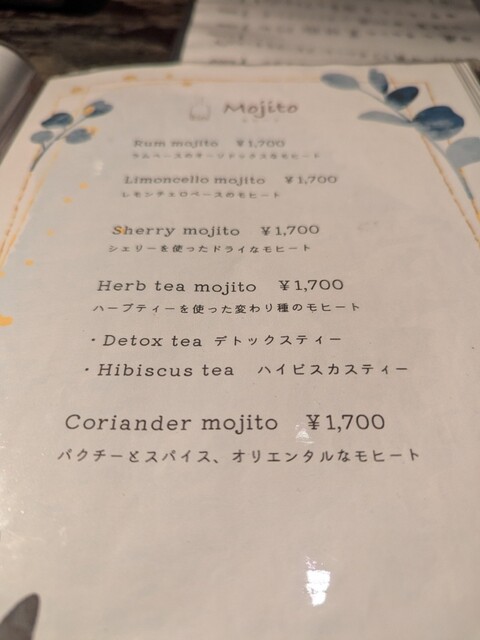 Mojito
Rum mojito ¥1,700
ラムベースのオーソドックスなモヒート
Limoncello mojito ¥1,700
レモンチェロベースのモヒート
Sherry mojito ¥1,700
シェリーを使ったドライなモヒート
Herb tea mojito ¥1,700
ハーブティーを使った変わり種のモヒート
・Detox tea デトックスティー
・Hibiscus tea ハイビスカスティー
Coriander mojito ¥1,700
パクチーとスパイス、オリエンタルなモヒート